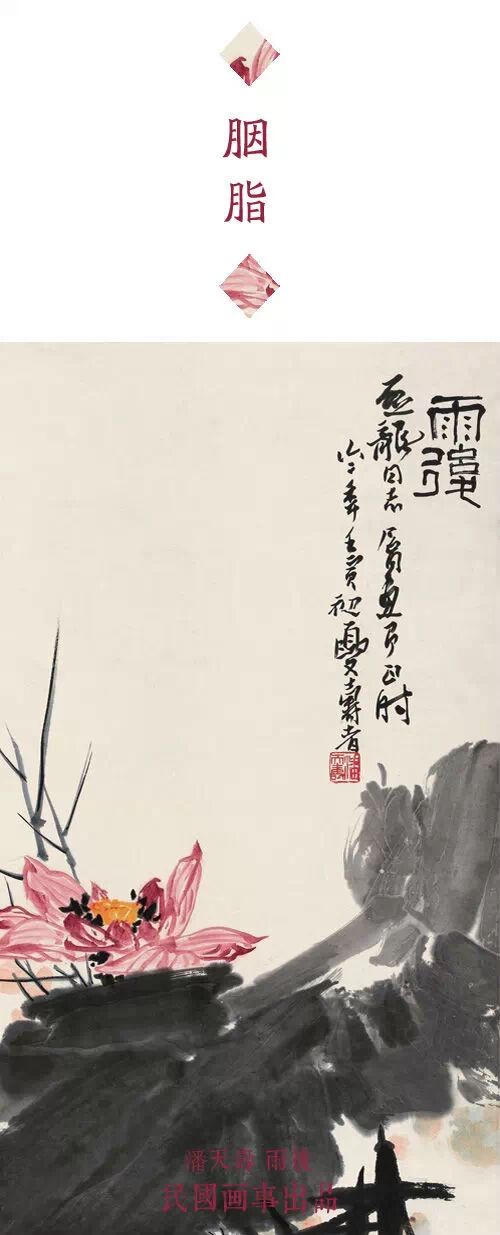 胭脂
雨後
亞龍同志屬畫即正時
六二年壬寅初夏壽者
潘天壽 雨後
民國画事出品